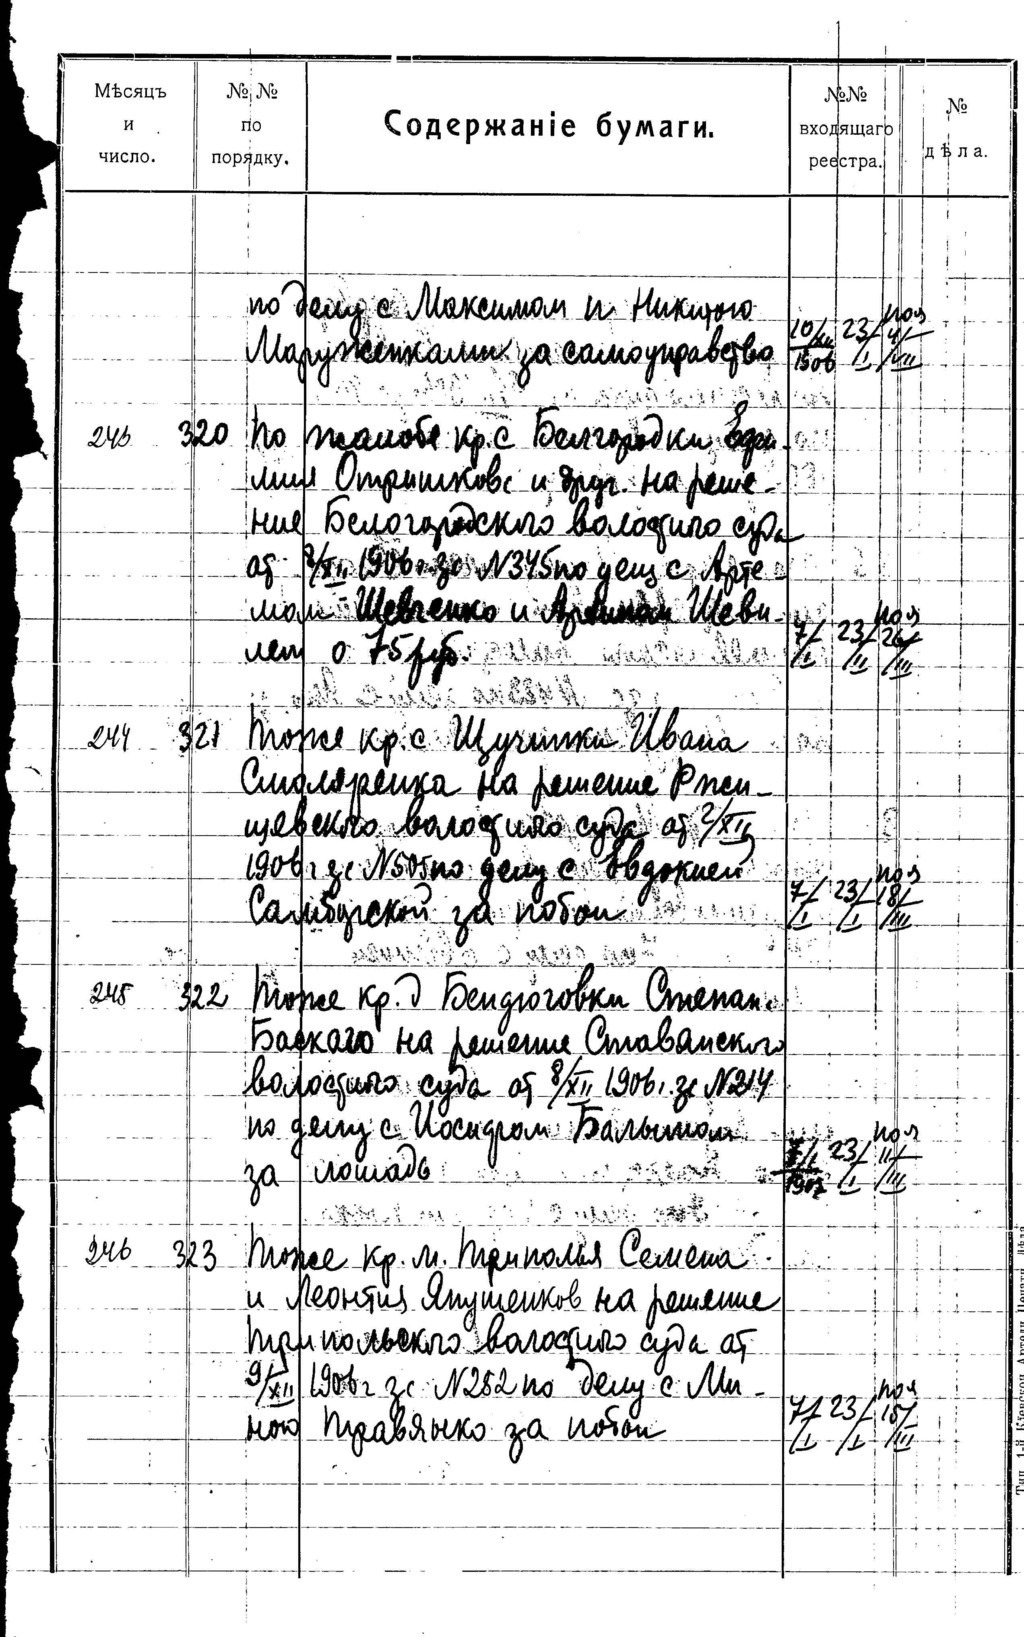 Мѣсяцъ и число. №№ по порядку. Содержаніе бумаги. №№ входящаго реестра. № дѣла.
по делу с Максимом и Никитою
Маруженками за самоуправство 10/XII 1906 23/I 4/VII
243 320 По жалобе кр. с Белгородки
и друг. на реше-
ние Белогородского волостного суда
от 8/XII 1906 г. за N345 по делу с Арте-
мом Шевченко и Архипом Шеви-
лем о 75 руб. 7/I 23/II 26/III
244 321 Тоже кр. с Щучинки Ивана
Смоляренка на решение Ржи-
щевского волостного суда от 2/XII
1906 г за N505 по делу с Евдокией
Самбурской за побои 7/I 23/I 18/III
245 322 Тоже кр. д Бендюговки Степана
Баскаго на решение Ставянского
волостного суда от 8/XII 1906 г. за N214
по делу с Иосифом
за лошадь 7/I 1907 23/I 11/III
246 323 Тоже кр. м. Триполья Семена
и Леонтия Япушенков на решение
Трипольского волостного суда от
9/XII 1906 г за N282 по делу с Ми-
ною Правянко за побои 7/I 23/I 15/III